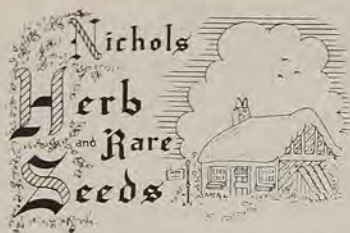 Nichols
Herb
and Rare
Seeds